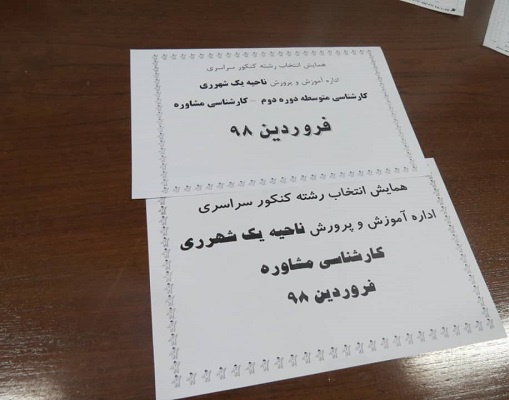 همایش انتخاب رشته کنکور سراسری
اداره آموزش و پرورش ناحیه یک شهرری
کارشناسی متوسطه دوره دوم - کارشناسی مشاوره
فروردین ۹۸
همایش انتخاب رشته کنکور سراسری
اداره آموزش و پرورش ناحیه یک شهرری
کارشناسی مشاوره
فروردین ۹۸